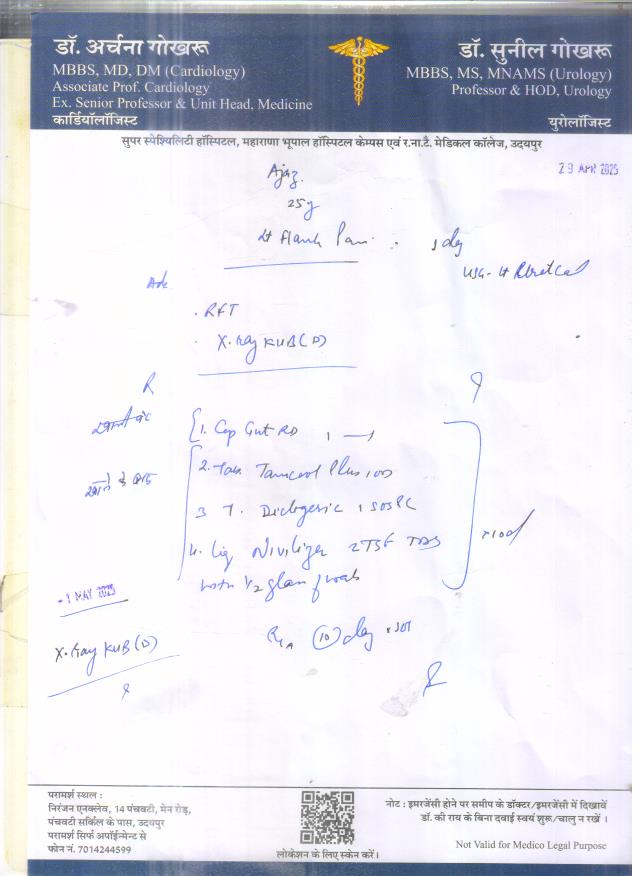 डॉ. अर्चना गोखरू
MBBS, MD, DM (Cardiology)
Associate Prof. Cardiology
Ex. Senior Professor & Unit Head, Medicine
कार्डियॉलॉजिस्ट
डॉ. सुनील गोखरू
MBBS, MS, MNAMS (Urology)
Professor & HOD, Urology
युरोलॉजिस्ट
सुपर स्पेश्यिलिटी हॉस्पिटल, महाराणा भूपाल हॉस्पिटल केम्पस एवं र.ना.टै. मेडिकल कॉलेज, उदयपुर
29 APR 2025
Ajaz
25y
Lt Flank Pain 1 day
USG- Lt
Adv
. RFT
. X-ray KUB (D)
R
खाली पेट
1. Cap Gut RD 1
खाने के बाद
2. Tab.
3 T. 1 SOS
4. Liq 2TSF TDS
with 1/2 glass of water
x 10d
- 1 MAY 2025
10 day
X-ray KUB (D)
परामर्श स्थल :
निरंजन एनक्लेव, 14 पंचवटी, मेन रोड़,
पंचवटी सर्किल के पास, उदयपुर
परामर्श सिर्फ अपॉईन्मेन्ट से
फोन नं. 7014244599
लोकेशन के लिए स्केन करें।
नोट : इमरजेंसी होने पर समीप के डॉक्टर/इमरजेंसी में दिखावें
डॉ. की राय के बिना दवाई स्वयं शुरू/चालु न रखें ।
Not Valid for Medico Legal Purpose